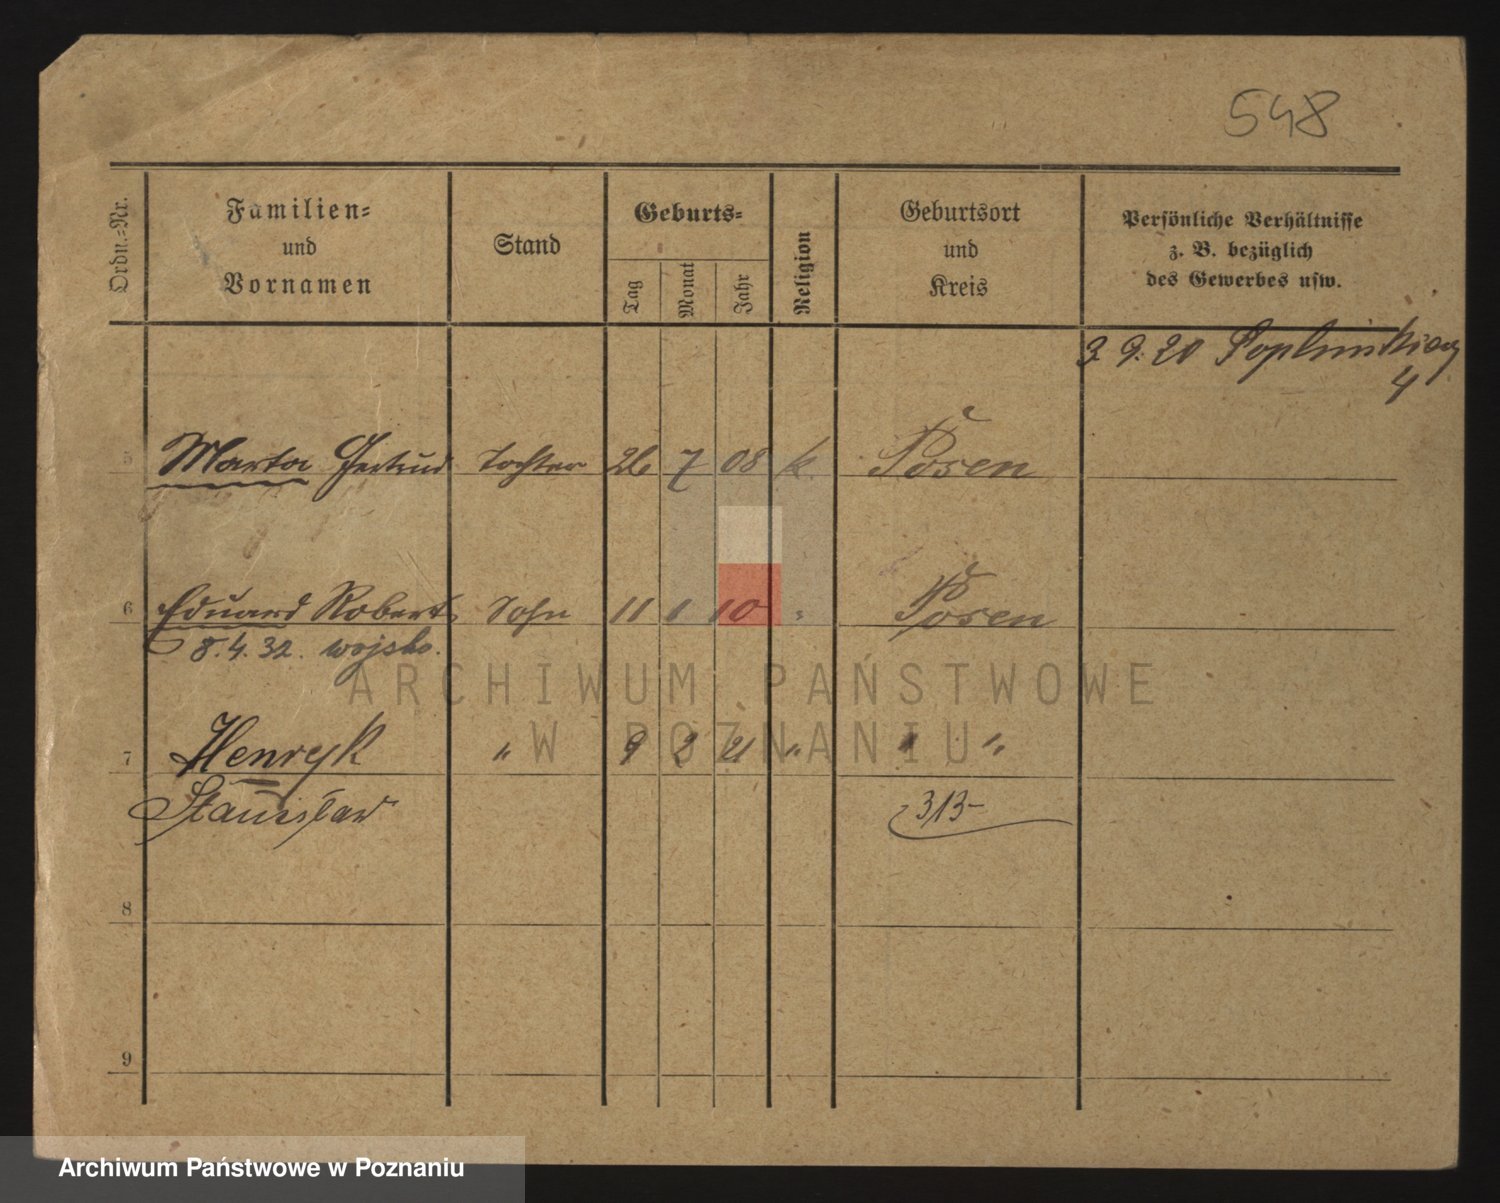 548
Ordn.-Nr.
Familien-
und
Vornamen
Stand
Geburts-
Tag
Monat
Jahr
Religion
Geburtsort
und
Kreis
Persönliche Verhältnisse
z. B. bezüglich
des Gewerbes usw.
3. 9. 20
4
5 Marta Gertrud Tochter 26 7 08 k. Posen
6 Eduard Robert Sohn 11 1 10 " Posen
8.4.32. wojsko.
7 Henryk " 9 2 21 " " "
Stanisław 313-
8
9
ARCHIWUM PAŃSTWOWE
W POZNANIU
Archiwum Państwowe w Poznaniu